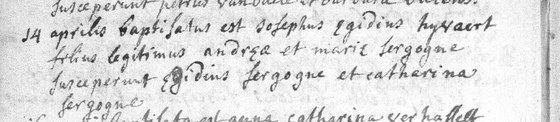 susceperunt petrus van
14 aprilis baptisatus est Josephus egidius hyvaert
filius legitimus andreæ et mariæ sergogne
susceperunt egidius sergogne et catharina
sergogne
est anna catharina verhasselt